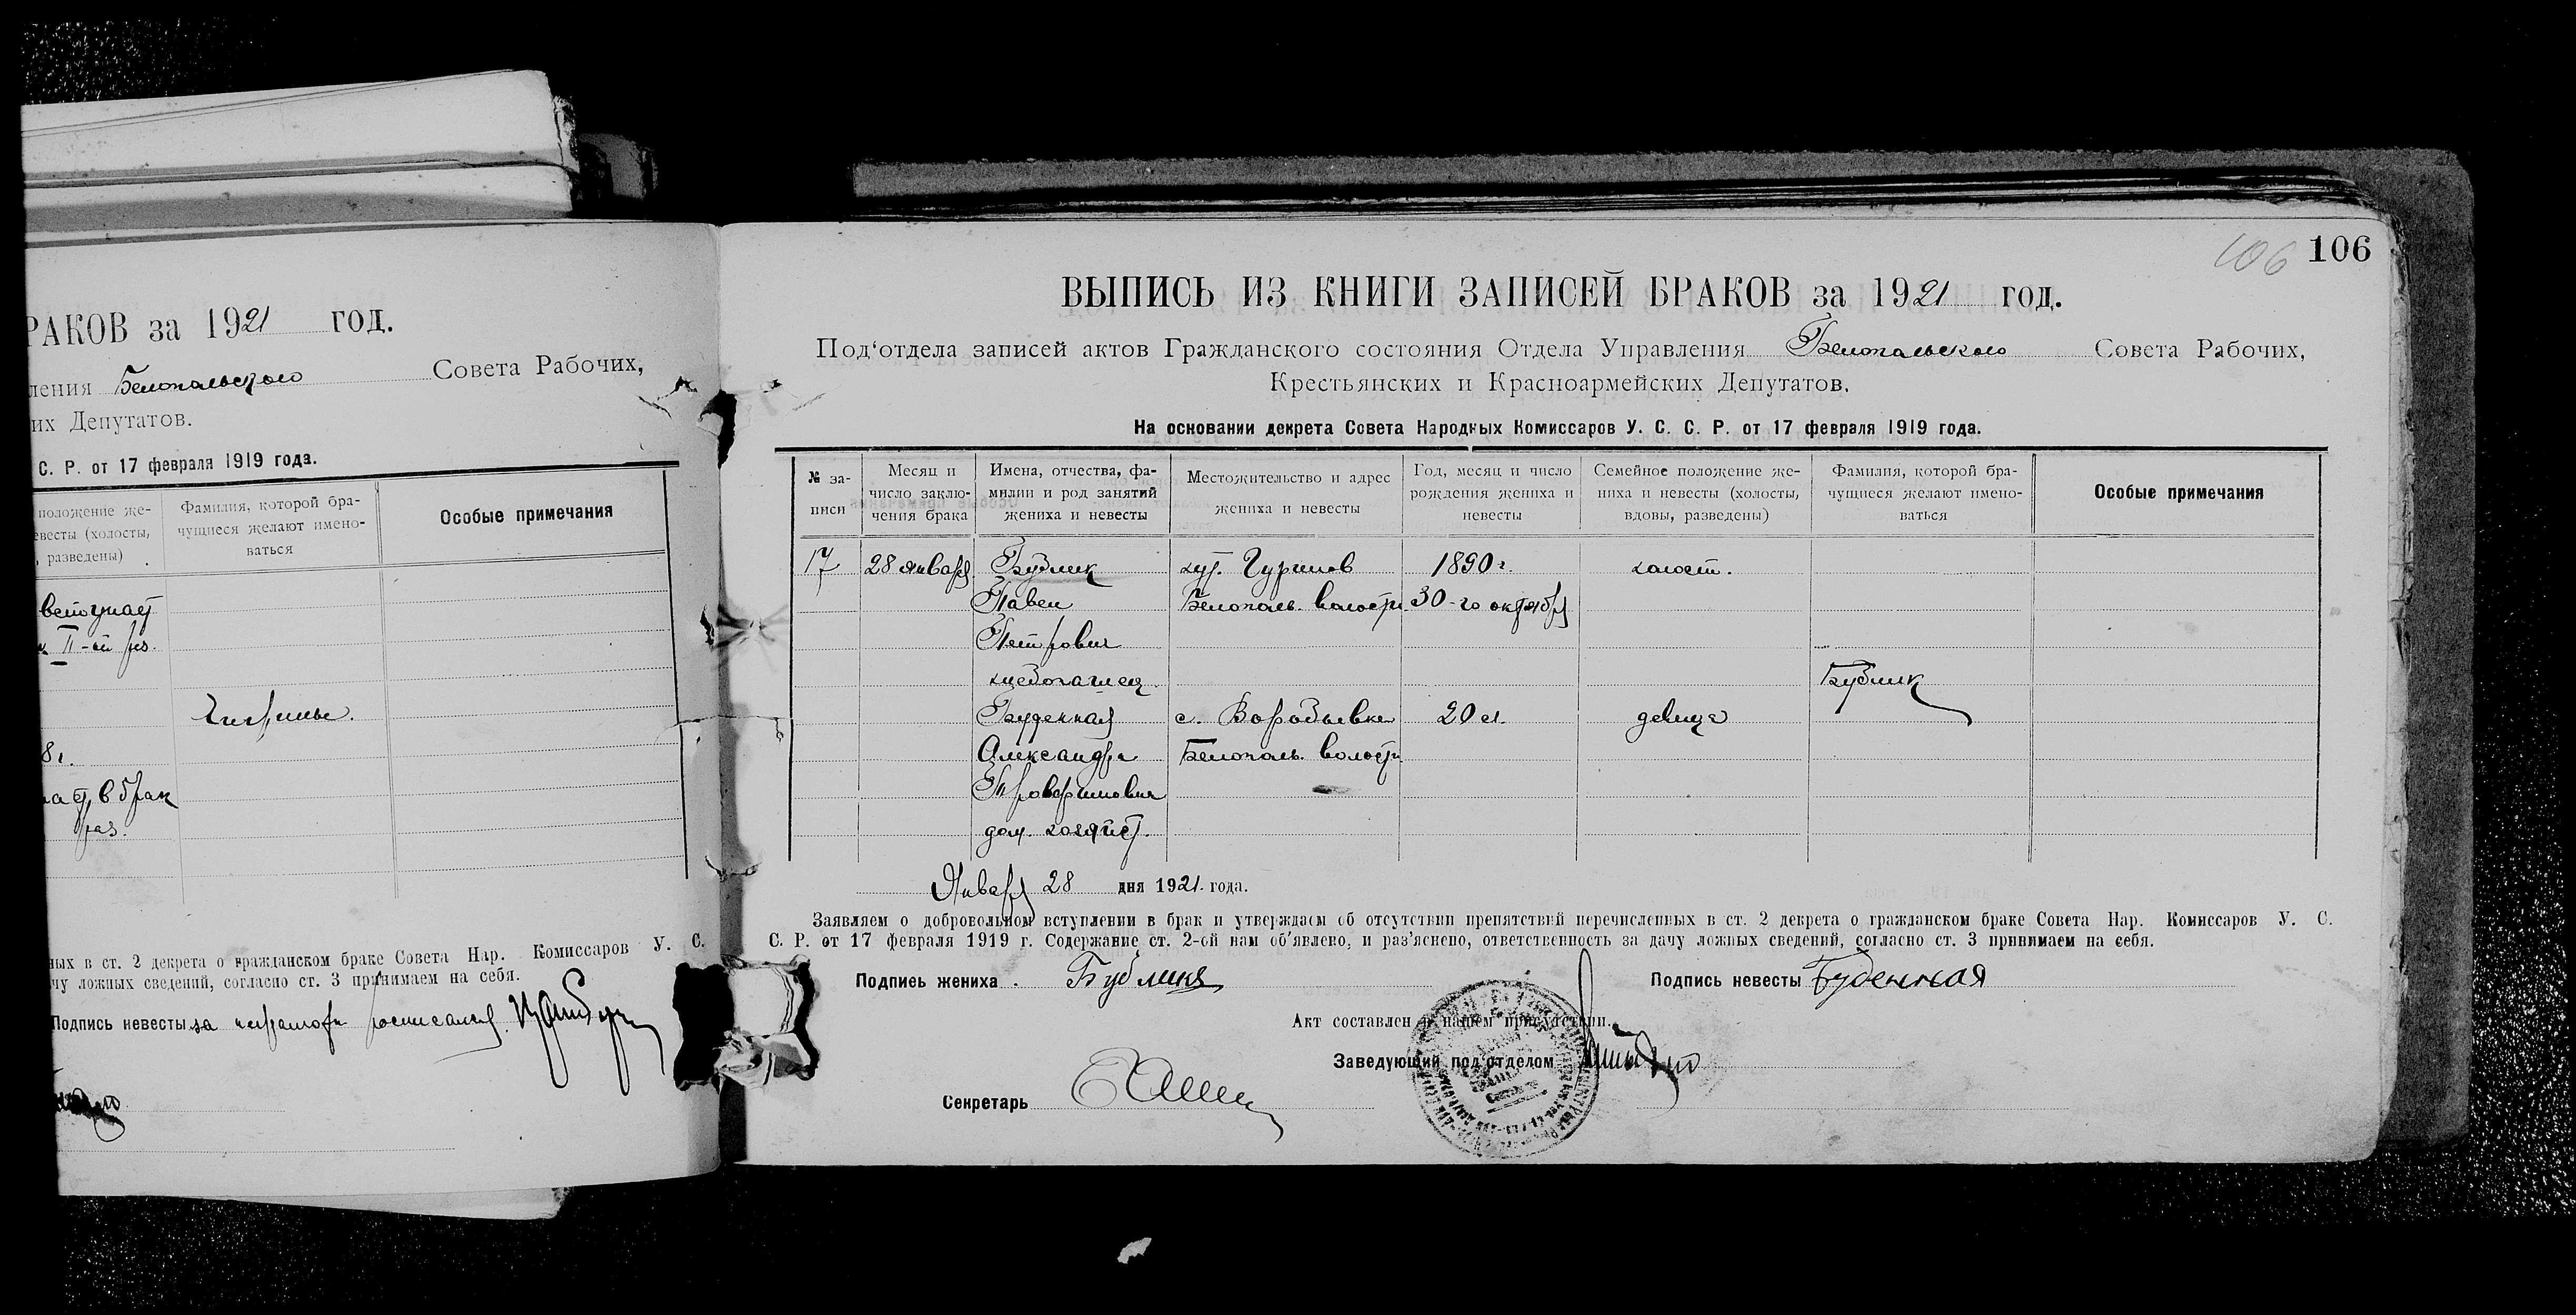 РАКОВ за 1921 год.
ления Белопольского Совета Рабочих,
их Депутатов.
С. Р. от 17 февраля 1919 года.
положение же-
евесты (холосты,
, разведены)
Фамилия, которой бра-
чущиеся желают имено-
ваться
Особые примечания
II-ой раз.
8 г.
в брак
раз.
ных в ст. 2 декрета о гражданском браке Совета Нар. Комиссаров У. С.
чу ложных сведений, согласно ст. 3 принимаем на себя.
Подпись невесты за неграмотн росписался
106 106
ВЫПИСЬ ИЗ КНИГИ ЗАПИСЕЙ БРАКОВ за 1921 год.
Под‘отдела записей актов Гражданского состояния Отдела Управления Белопольского Совета Рабочих,
Крестьянских и Красноармейских Депутатов.
На основании декрета Совета Народных Комиссаров У. С. С. Р. от 17 февраля 1919 года.
№ за-
писи
Месяц и
число заклю-
чения брака
Имена, отчества, фа-
милии и род занятий
жениха и невесты
Местожительство и адрес
жениха и невесты
Год, месяц и число
рождения жениха и
невесты
Семейное положение же-
ниха и невесты (холосты,
вдовы, разведены)
Фамилия, которой бра-
чущиеся желают имено-
ваться
Особые примечания
17 28 января Бублик хут. Гуринов 1890 г. холост.
Павел Белополь. волости 30-го октября
Петрович
хлебопашец Бублик
Буденная с. Воробьевка 20 л. девица
Александра Белополь. волости
дом. хозяйст.
Января 28 дня 1921 года.
Заявляем о добровольном вступлении в брак и утверждаем об отсутствии препятствий перечисленных в ст. 2 декрета о гражданском браке Совета Нар. Комиссаров У. С.
С. Р. от 17 февраля 1919 г. Содержание ст. 2-ой нам об‘явлено, и раз‘яснено, ответственность за дачу ложных сведений, согласно ст. 3 принимаем на себя.
Подпись жениха Бублик Подпись невесты Буденная
Акт составлен в нашем присутствии.
Заведующий под‘отделом
Секретарь